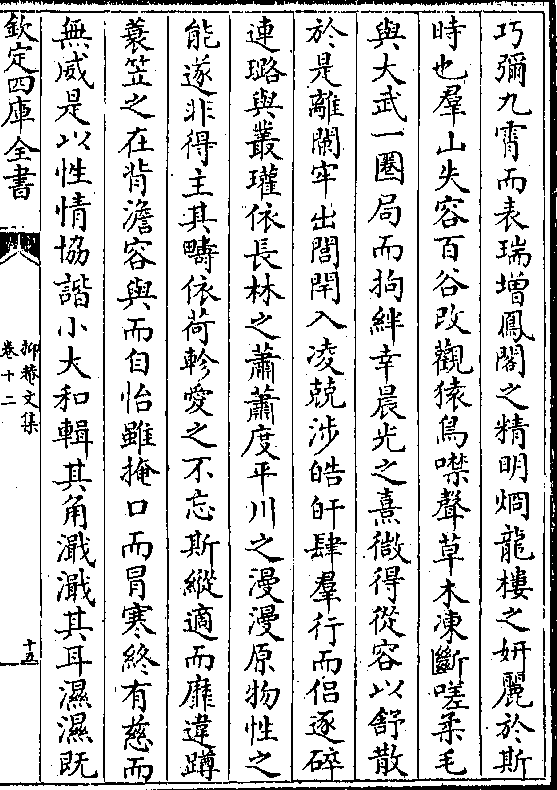 巧彌九霄而表瑞增鳳閣之精明烱龍樓之妍麗於斯
時也羣山失容百谷改觀猿鳥噤聲草木凍斷嗟柔毛
與大武一圏局而拘絆幸晨光之熹微得從容以舒散
於是離闌牢出閭閈入凌兢涉皓旰肆羣行而侣逐碎
連璐與叢瓘依長林之蕭蕭度平川之漫漫原物性之
能遂非得主其疇依荷軫愛之不忘斯縱適而靡違蹲
蓑笠之在背澹容與而自怡雖掩口而冒寒終有慈而
無威是以性情協諧小大和輯其角濈濈其耳濕濕既
欽定四庫全書
抑菴文集
卷十二
十五